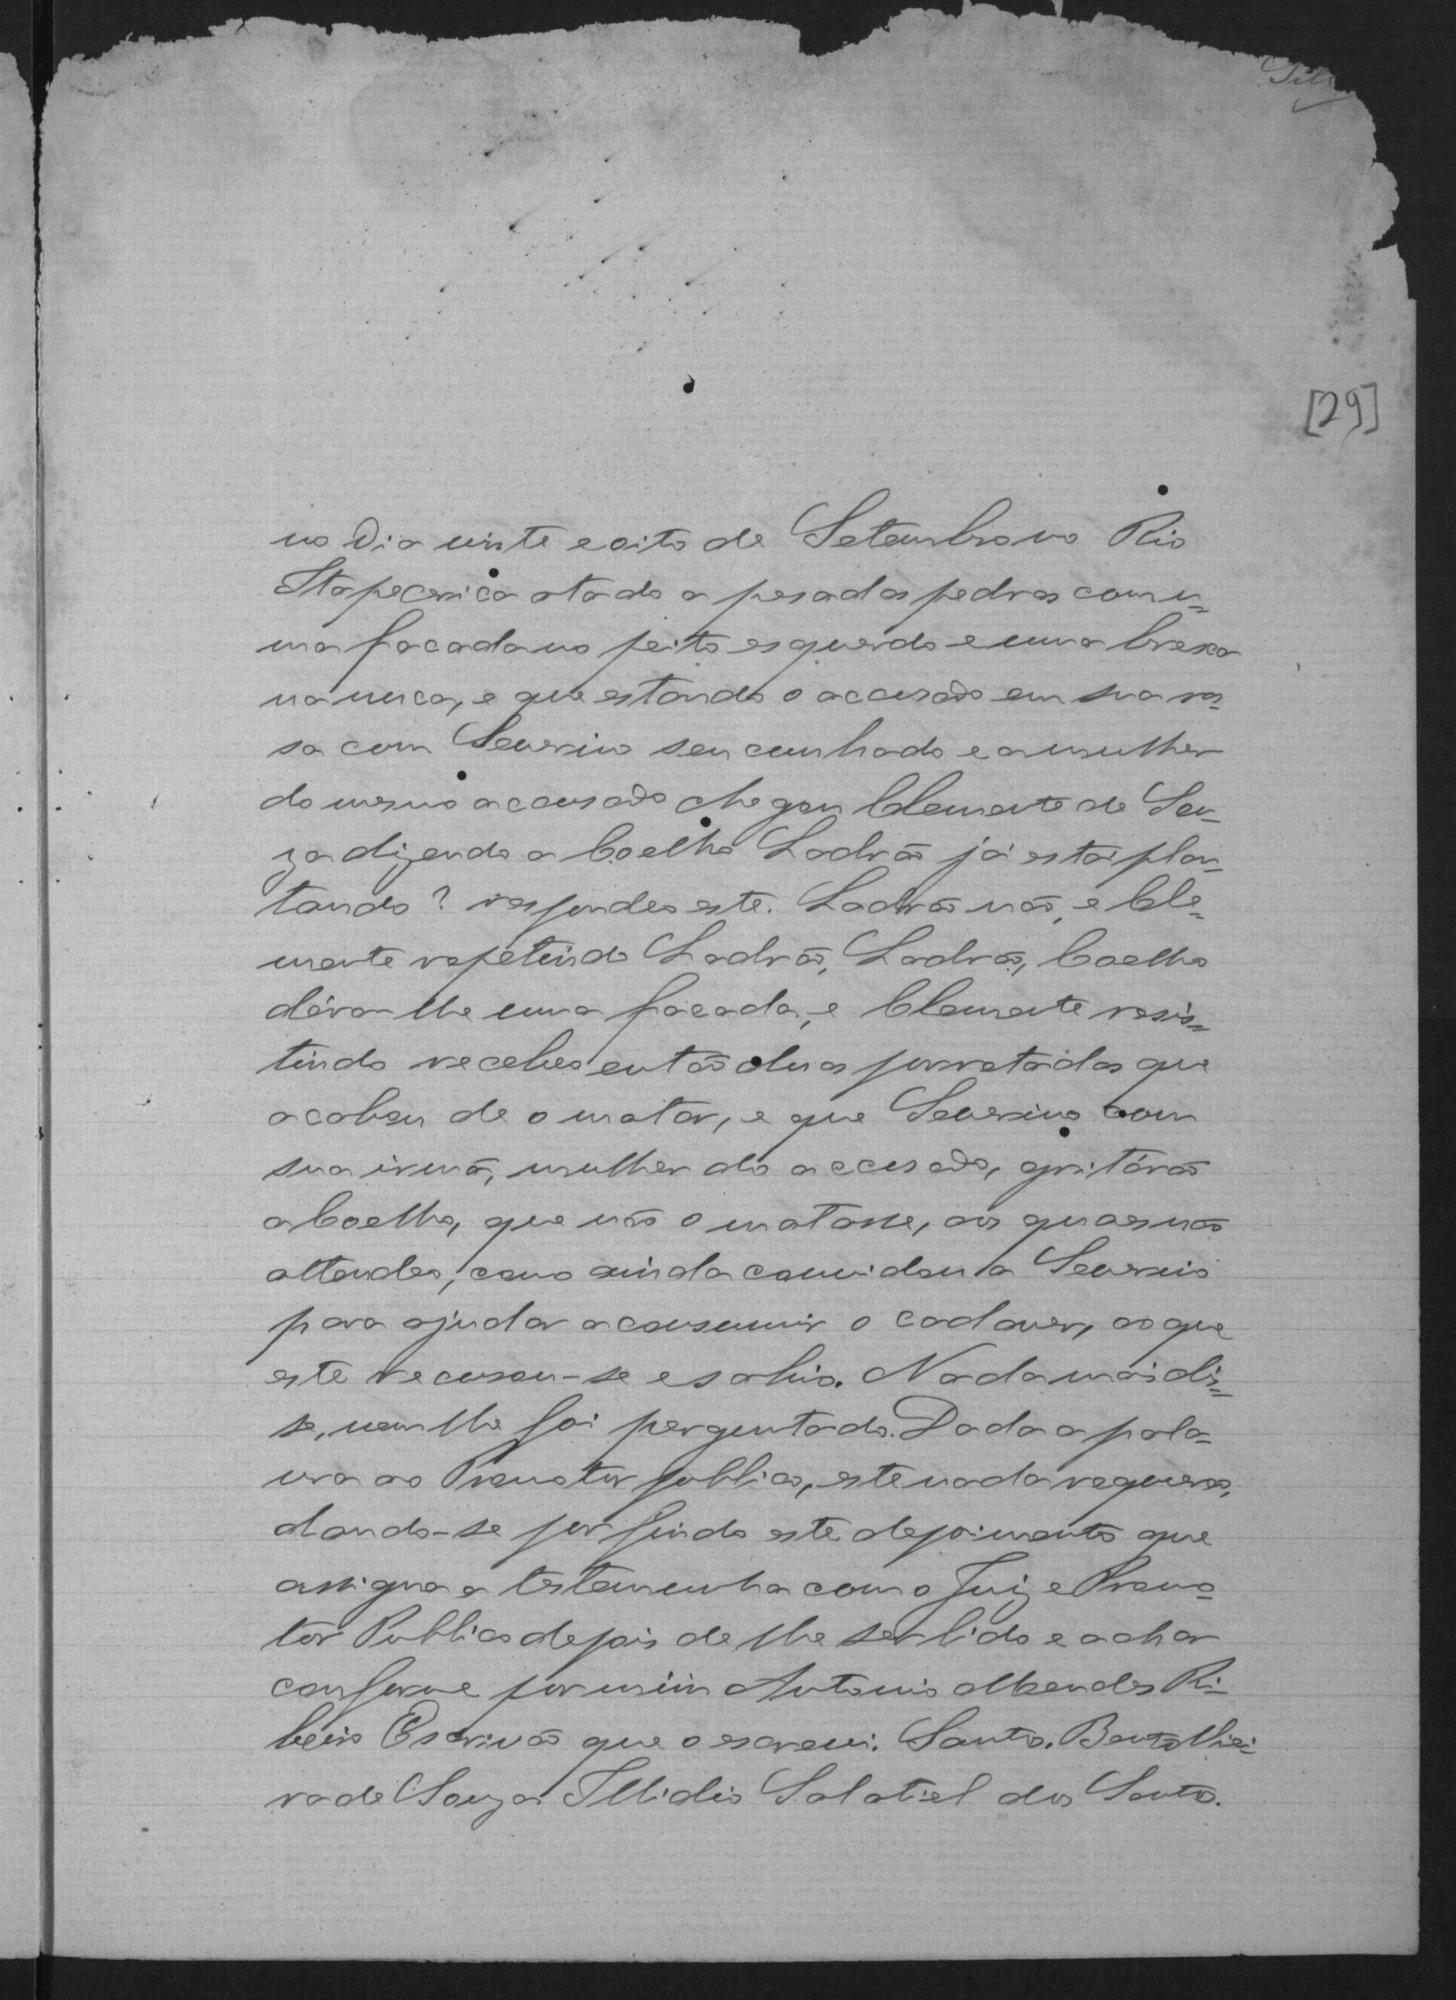 [29]
no dia vinte e oito de Setembro no Rio
Itapecerica atado a pesadas pedras com u=
ma facada no peito esquerdo e uma brexa
na nuca, e que estando o accusado em sua ro=
sa com Severino seu cunhado e a mulher
do mesmo accusado chegou Clemente de Sou=
za dizendo a Coelho Ladrão já está plan=
tando? respondeo este. Ladrão não, e Cle=
mente repetindo Ladrão, Ladrão, Coelho
déra lhe uma facada, e Clemente resis=
tindo recebeo então duas porretadas que
acabou de o matar, e que Severino com
sua irmã, mulher do accusado, gritárão
a Coelho, que não o matasse, aos quaes não
attendeo, como ainda convidou a Severino
para ajudar a consumir o cadaver, ao que
este recusou-se e sahio. Nada mais dis=
se, nem lhe foi perguntado. Dada a pala=
vra ao Promotor publico, este nada requereo,
dando-se por findo este depoimento que
assigna a testemunha com o Juiz e Promo=
tor Publico depois de lhe ser lido e achar
conforme por mim Antonio Mendes Ri=
beiro Escrivão que o escrevi. Santos.
ra de Souza Illidio Salatiel dos Santos.